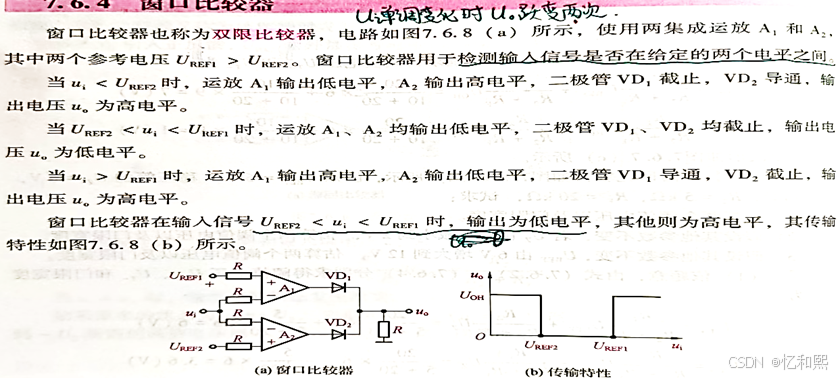 7.6.4 窗口比较器
Ui单调变化时Uo跃变两次.
窗口比较器也称为双限比较器，电路如图7.6.8（a）所示，使用两集成运放 A1 和 A2，
其中两个参考电压 UREF1 > UREF2。窗口比较器用于检测输入信号是否在给定的两个电平之间。
当 ui < UREF2 时，运放 A1 输出低电平，A2 输出高电平，二极管 VD1 截止，VD2 导通，输
出电压 uo 为高电平。
当 UREF2 < ui < UREF1 时，运放 A1、A2 均输出低电平，二极管 VD1、VD2 均截止，输出电
压 uo 为低电平。
当 ui > UREF1 时，运放 A1 输出高电平，A2 输出低电平，二极管 VD1 导通，VD2 截止，输
出电压 uo 为高电平。
窗口比较器在输入信号 UREF2 < ui < UREF1 时，输出为低电平，其他则为高电平，其传输
特性如图7.6.8（b）所示。
UREF1 R + A1 − VD1
ui R R uo
UREF2 R + A2 − VD2 R
(a) 窗口比较器
uo
UOH
O UREF2 UREF1 ui
(b) 传输特性
CSDN @忆和熙